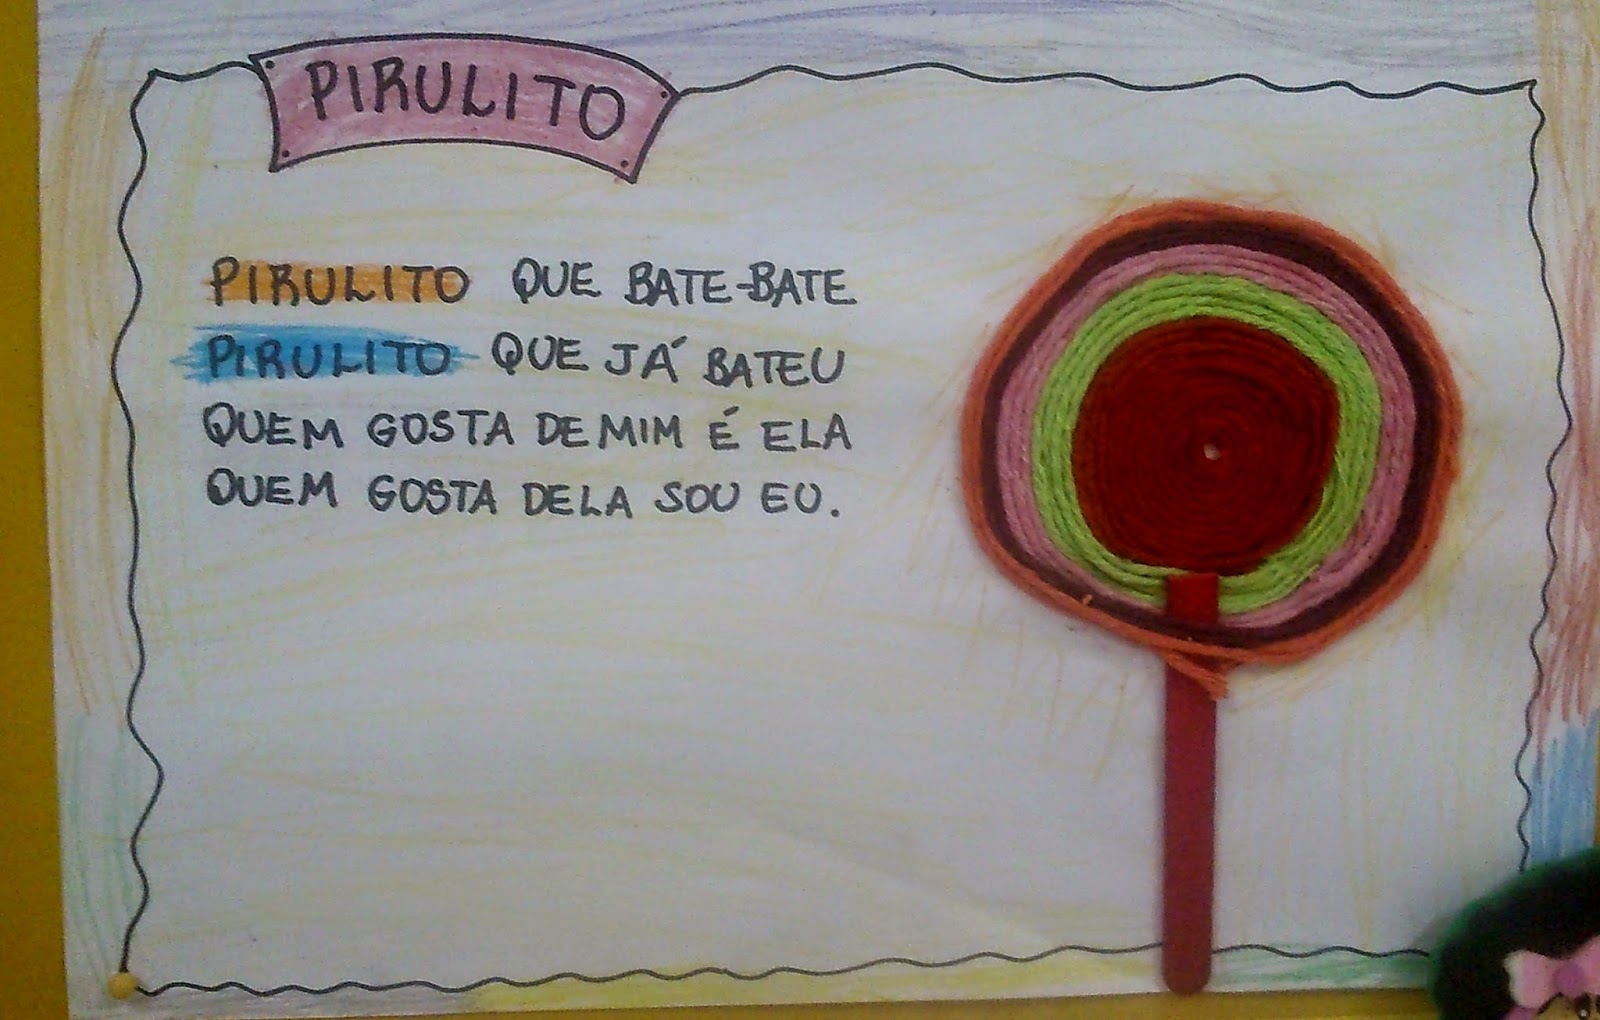 PIRULITO
PIRULITO QUE BATE-BATE
PIRULITO QUE JÁ BATEU
QUEM GOSTA DE MIM É ELA
QUEM GOSTA DELA SOU EU.